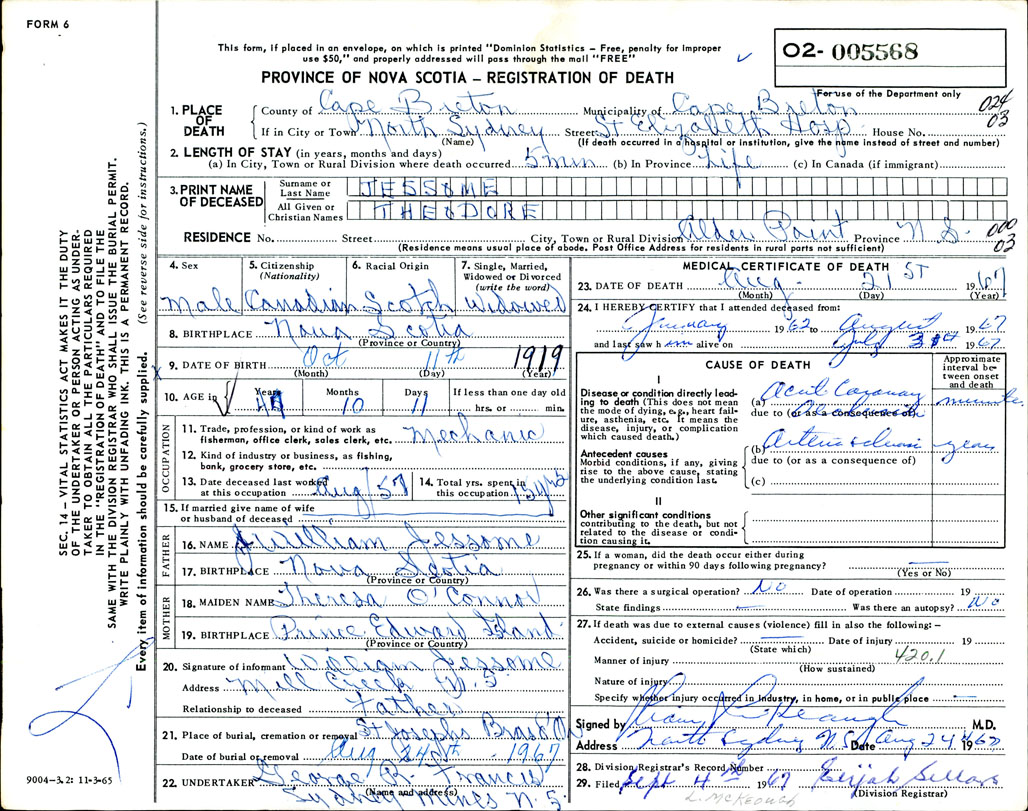 FORM 6
This form, if placed in an envelope, on which is printed "Dominion Statistics – Free, penalty for improper
use $50," and properly addressed will pass through the mail "FREE"
PROVINCE OF NOVA SCOTIA – REGISTRATION OF DEATH
02- 005568
For use of the Department only
024
03
1. PLACE OF DEATH
County of Cape Breton Municipality of Cape Breton
If in City or Town North Sydney Street St Elizabeth Hosp House No.
(Name) (If death occurred in a hospital or institution, give the name instead of street and number)
2. LENGTH OF STAY (in years, months and days)
(a) In City, Town or Rural Division where death occurred 5 min (b) In Province Life (c) In Canada (if immigrant)
3. PRINT NAME OF DECEASED
Surname or Last Name JESSOME
All Given or Christian Names THEODORE
RESIDENCE No. Street City, Town or Rural Division Alder Point Province N S.
000
03
(Residence means usual place of abode. Post Office Address for residents in rural parts not sufficient)
4. Sex
Male
5. Citizenship (Nationality)
Canadian
6. Racial Origin
Scotch
7. Single, Married, Widowed or Divorced (write the word)
Widowed
8. BIRTHPLACE Nova Scotia
(Province or Country)
9. DATE OF BIRTH Oct 11th 1919
(Month) (Day) (Year)
10. AGE in Years Months Days If less than one day old
10 11 hrs. or min.
OCCUPATION
11. Trade, profession, or kind of work as
fisherman, office clerk, sales clerk, etc. Mechanic
12. Kind of industry or business, as fishing,
bank, grocery store, etc.
13. Date deceased last worked
at this occupation Aug/57
14. Total yrs. spent in
this occupation 15 yrs
15. If married give name of wife
or husband of deceased
FATHER
16. NAME William Jessome
17. BIRTHPLACE Nova Scotia
(Province or Country)
MOTHER
18. MAIDEN NAME Theresa O'Connor
19. BIRTHPLACE Prince Edward Island
(Province or Country)
20. Signature of informant William Jessome
Address Mill Creek N. S
Relationship to deceased Father
21. Place of burial, cremation or removal St Josephs Bras d'Or
Date of burial or removal Aug 24th 1967
22. UNDERTAKER George B. Francis
(Name and address)
Sydney Mines N. S
MEDICAL CERTIFICATE OF DEATH
23. DATE OF DEATH Aug 21 ST 1967
(Month) (Day) (Year)
24. I HEREBY CERTIFY that I attended deceased from:
January 1962 to August 1967
and last saw him alive on July 1967.
CAUSE OF DEATH
Approximate interval between onset and death
I
Disease or condition directly leading to death (This does not mean
the mode of dying, e.g., heart failure, asthenia, etc. It means the
disease, injury, or complication
which caused death.)
(a) minutes
due to (or as a consequence of)
Antecedent causes
Morbid conditions, if any, giving
rise to the above cause, stating
the underlying condition last.
(b) years
due to (or as a consequence of)
(c)
II
Other significant conditions
contributing to the death, but not
related to the disease or condition causing it.
25. If a woman, did the death occur either during
pregnancy or within 90 days following pregnancy?
(Yes or No)
26. Was there a surgical operation? No Date of operation 19
State findings Was there an autopsy? No
27. If death was due to external causes (violence) fill in also the following: –
Accident, suicide or homicide? Date of injury 19
(State which)
420.1
Manner of injury
(How sustained)
Nature of injury
Specify whether injury occurred in industry, in home, or in public place
Signed by M.D.
Address North Sydney N.S. Date Aug 24 1967
28. Division Registrar's Record Number
29. Filed Sept 4th 1967 Elijah Sellars
(Division Registrar)
L. McKEOUGH
SEC. 14 – VITAL STATISTICS ACT MAKES IT THE DUTY
OF THE UNDERTAKER OR PERSON ACTING AS UNDER-
TAKER TO OBTAIN ALL THE PARTICULARS REQUIRED
IN THE "REGISTRATION OF DEATH" AND TO FILE THE
SAME WITH THE DIVISION REGISTRAR WHO SHALL ISSUE THE BURIAL PERMIT.
WRITE PLAINLY WITH UNFADING INK. THIS IS A PERMANENT RECORD.
Every item of information should be carefully supplied. (See reverse side for instructions.)
9004-3.2: 11-3-65